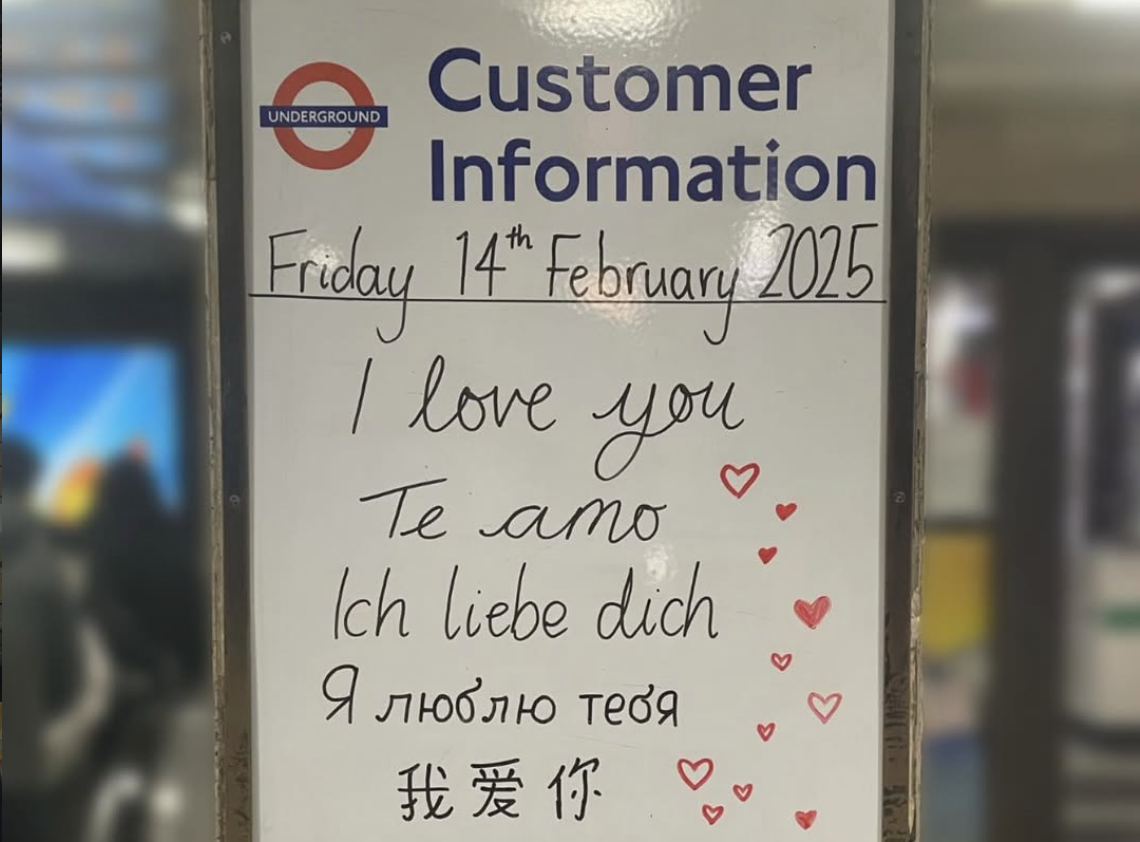 UNDERGROUND
Customer
Information
Friday 14th February 2025
I love you
Te amo
Ich liebe dich
Я люблю тебя
我爱你